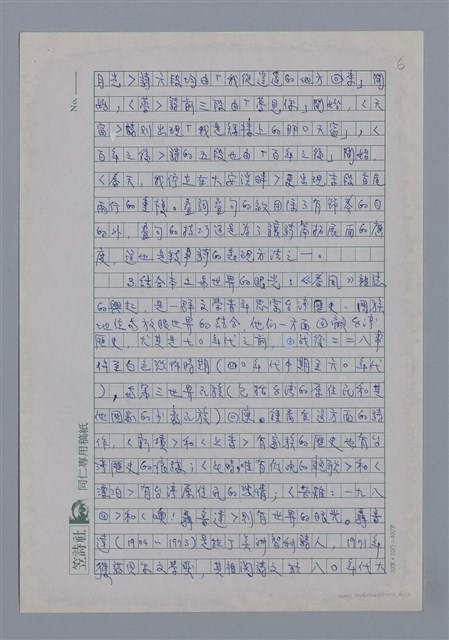 6
No.
月光＞詩六段均由「我從遙遠的地方回來」開
始，＜夢＞詩前三段由「夢見你」開始，＜天
窗＞詩則出現「我是樓上的那口天窗」，＜
百年之後＞詩的五段也由「百年之後」開始，
＜春天，我佇立在大安溪畔＞更出現末段首尾
兩行的重複。疊詞疊句的效用除了有節奏的目
的外，疊句的技巧還是為了讓詩篇拓展面的廣
度，這也是敍事詩的表現方法之一。
3.結合本土與世界的眼光：《春風》雜誌
的興起，是一群文學青年思索台灣歷史、關
地位與放眼世界的結合，他們一方面回顧台灣
歷史，尤其是七〇年代之前，由戰後二二八事
件至白色恐怖時期（四〇年代中期至六〇年代
），與第三世界文族（包括台灣的原住民和其
他國家的少數民族）回應。檢索在這方面的詩
作，＜ ＞和＜ ＞有家族的歷史也有台
灣歷史的痕跡；＜此時唯有低沈的 ＞和＜
＞有台灣原住民的悲情；＜ ：一九八
四＞和＜噢！聶魯達＞則有世界的眼光。聶魯
達（1904－1973）是拉丁美洲智利詩人，1971年
獲諾貝爾文學獎，其相關詩文於八〇年代大
笠詩社 同仁專用稿紙